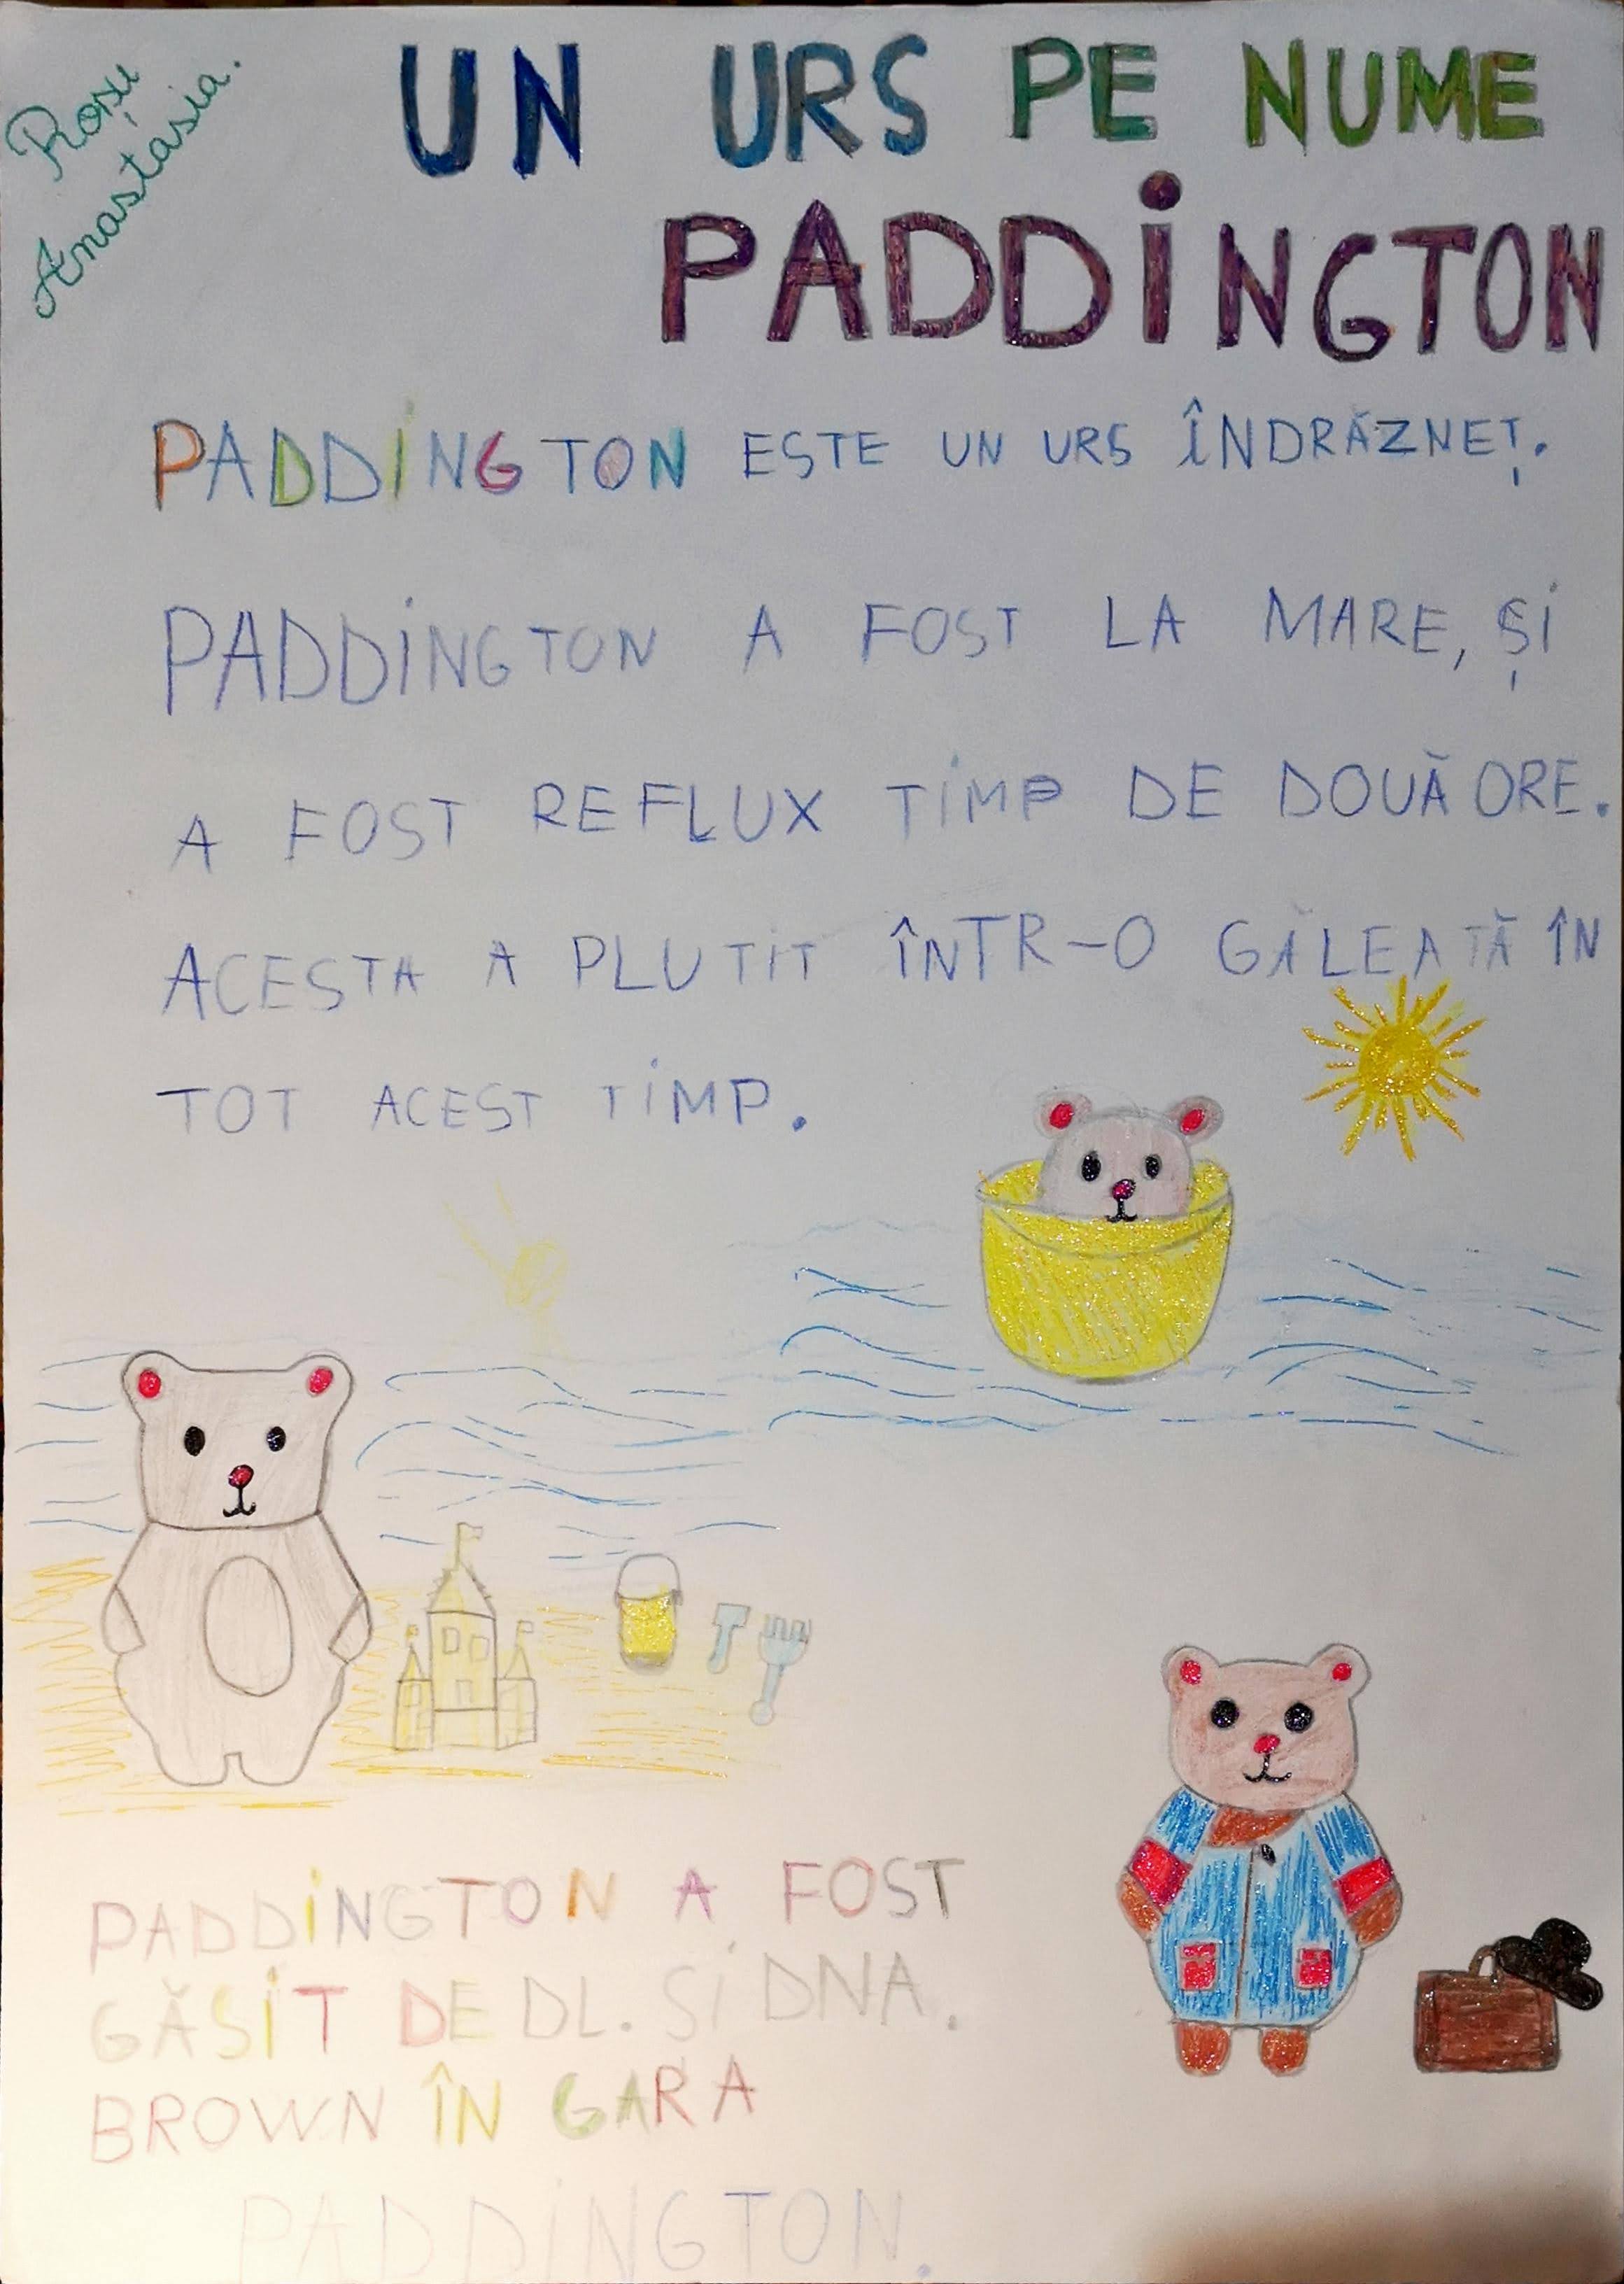 Roșu
Anastasia.
UN URS PE NUME
PADDiNGTON
PADDiNGTON ESTE UN URS ÎNDRĂZNEȚ.
PADDiNGTON A FOST LA MARE, Și
A FOST REFLUX TiMP DE DOUĂ ORE.
ACESTA A PLUTiT ÎNTR-O GĂLEATĂ ÎN
TOT ACEST TiMP.
PADDiNGTON A FOST
GĂSiT DE DL. Și DNA.
BROWN ÎN GARA
PADDiNGTON.